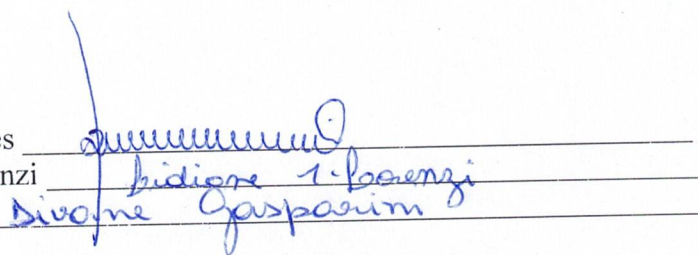 es
nzi Lidiane T. Lorenzi
Divane Gasparim